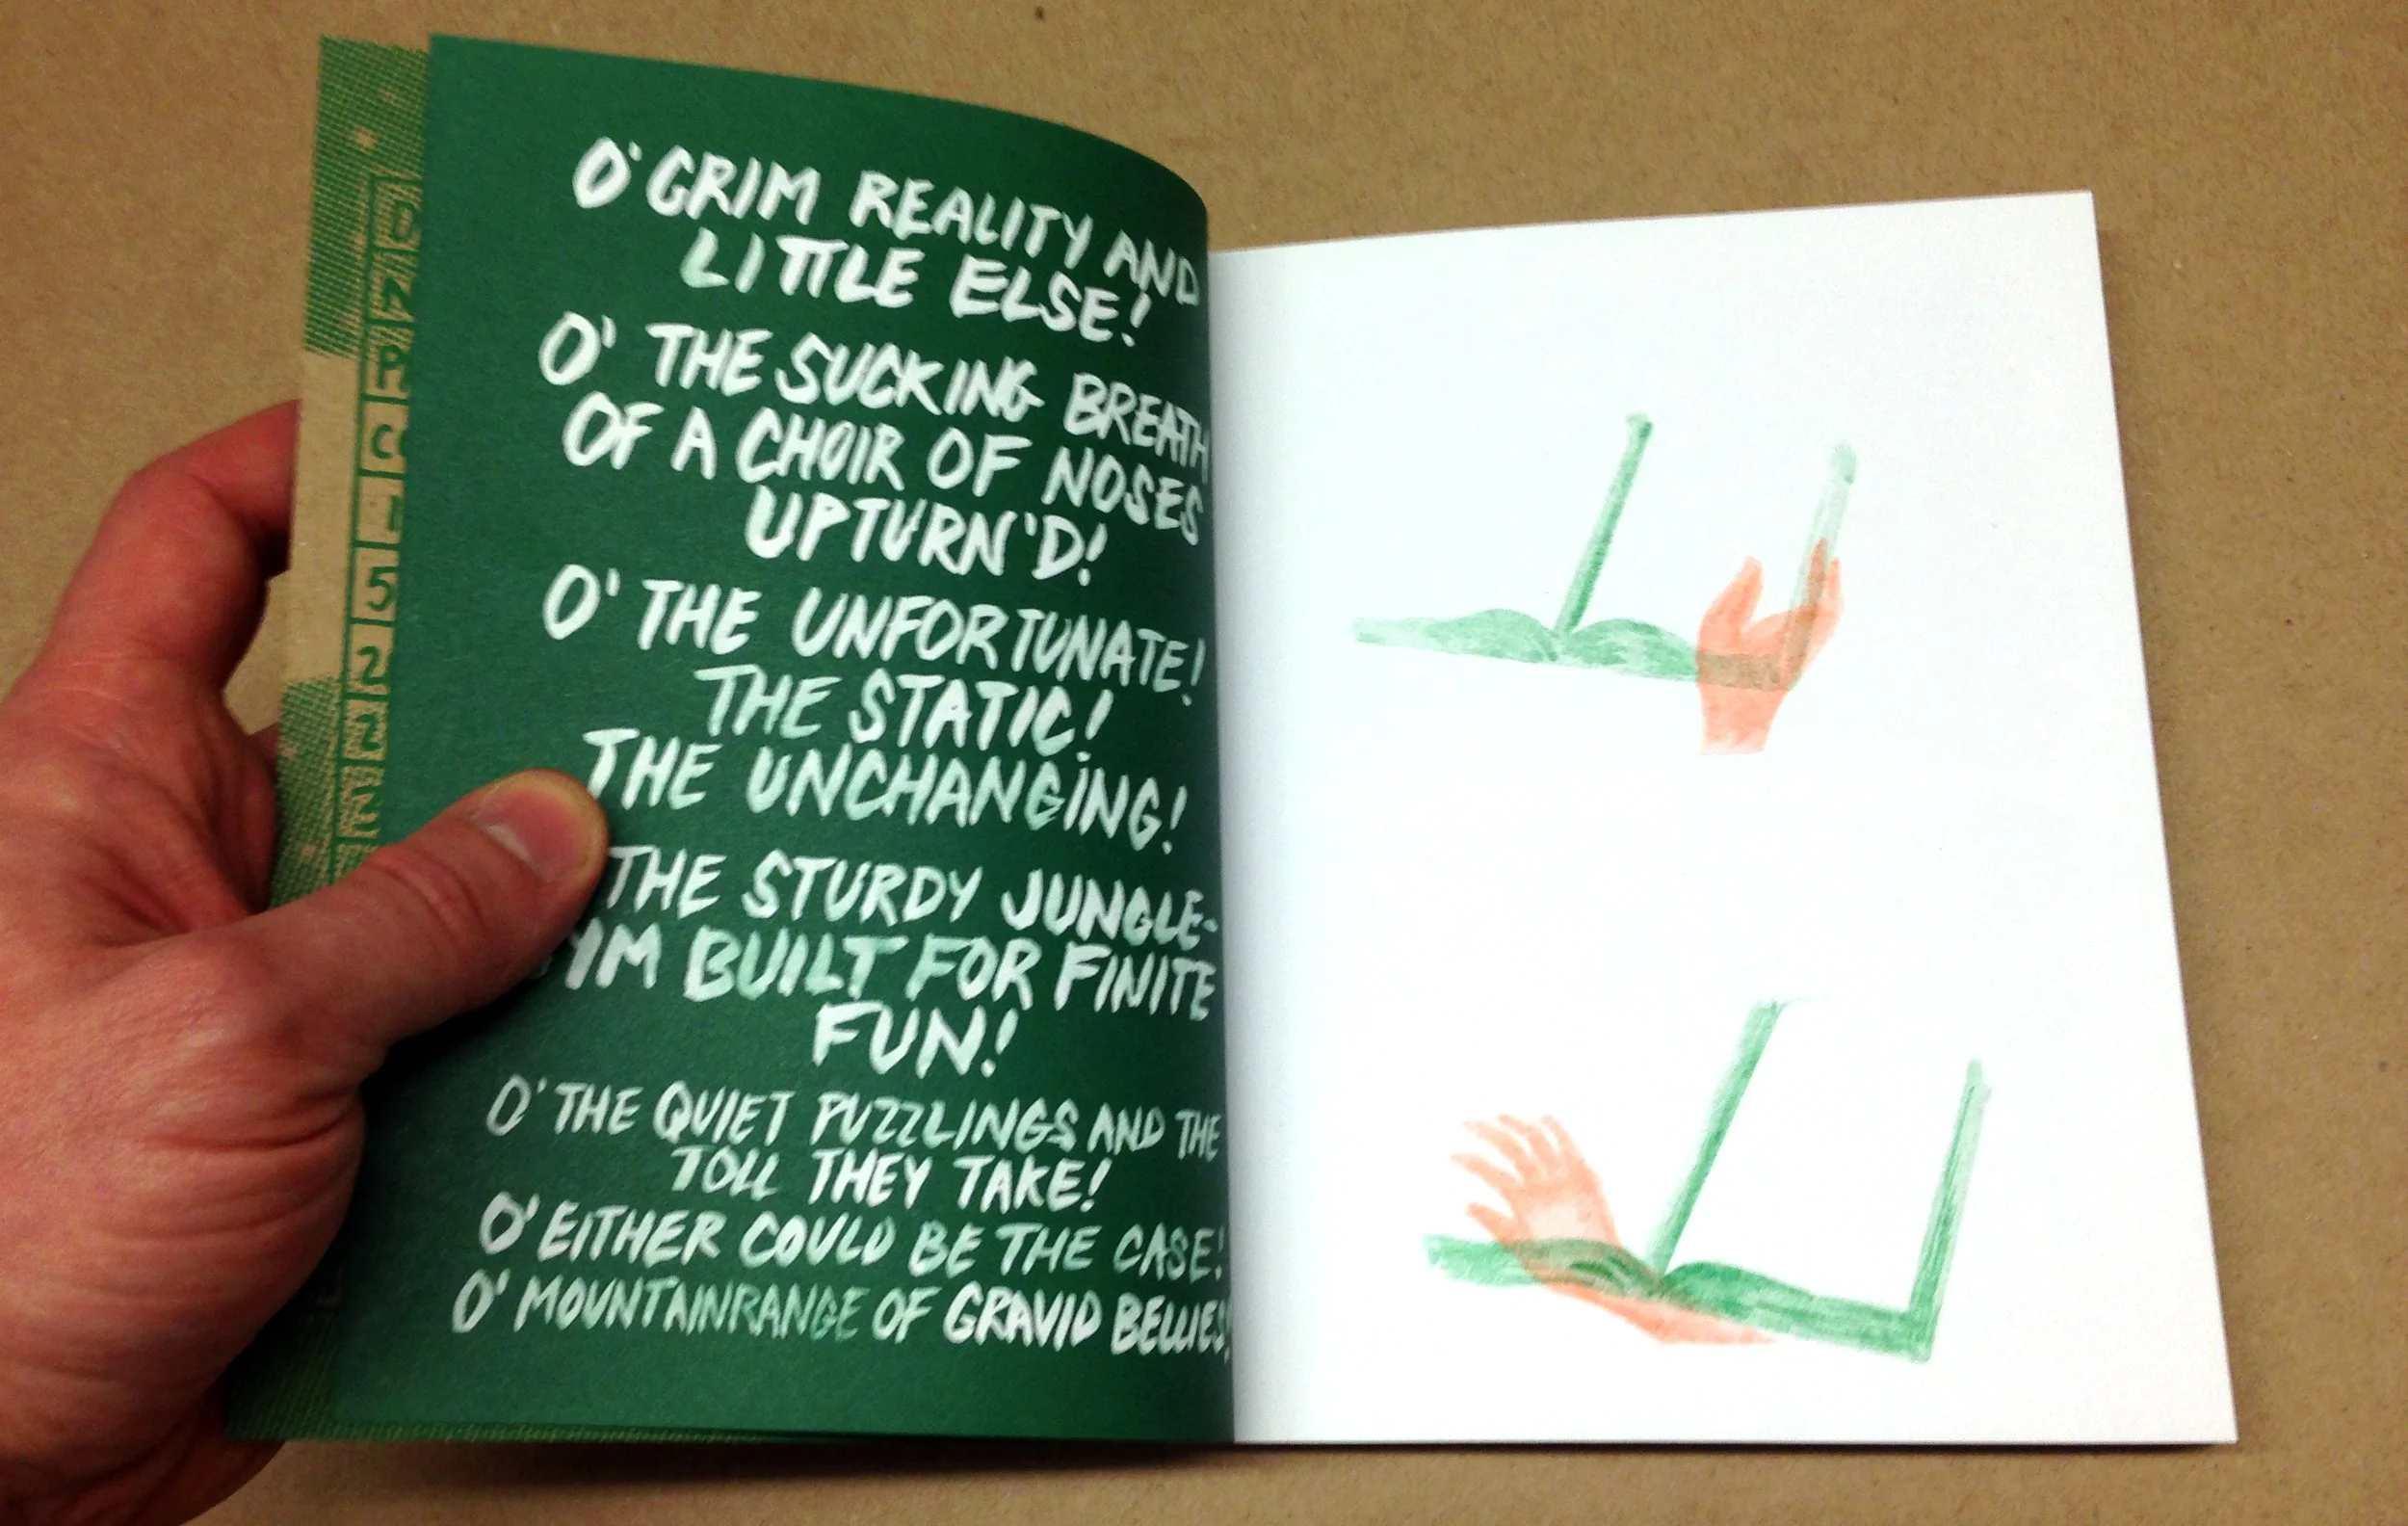 O' GRIM REALITY AND
LITTLE ELSE!
O' THE SUCKING BREATH
OF A CHOIR OF NOSES
UPTURN'D!
O' THE UNFORTUNATE!
THE STATIC!
THE UNCHANGING!
THE STURDY JUNGLE-
YM BUILT FOR FINITE
FUN!
O' THE QUIET PUZZLINGS AND THE
TOLL THEY TAKE!
O' EITHER COULD BE THE CASE!
O' MOUNTAINRANGE OF GRAVID BELLIES!